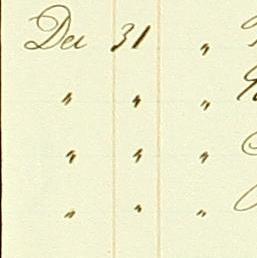 Dec 31 "
" " "
" " "
" " "